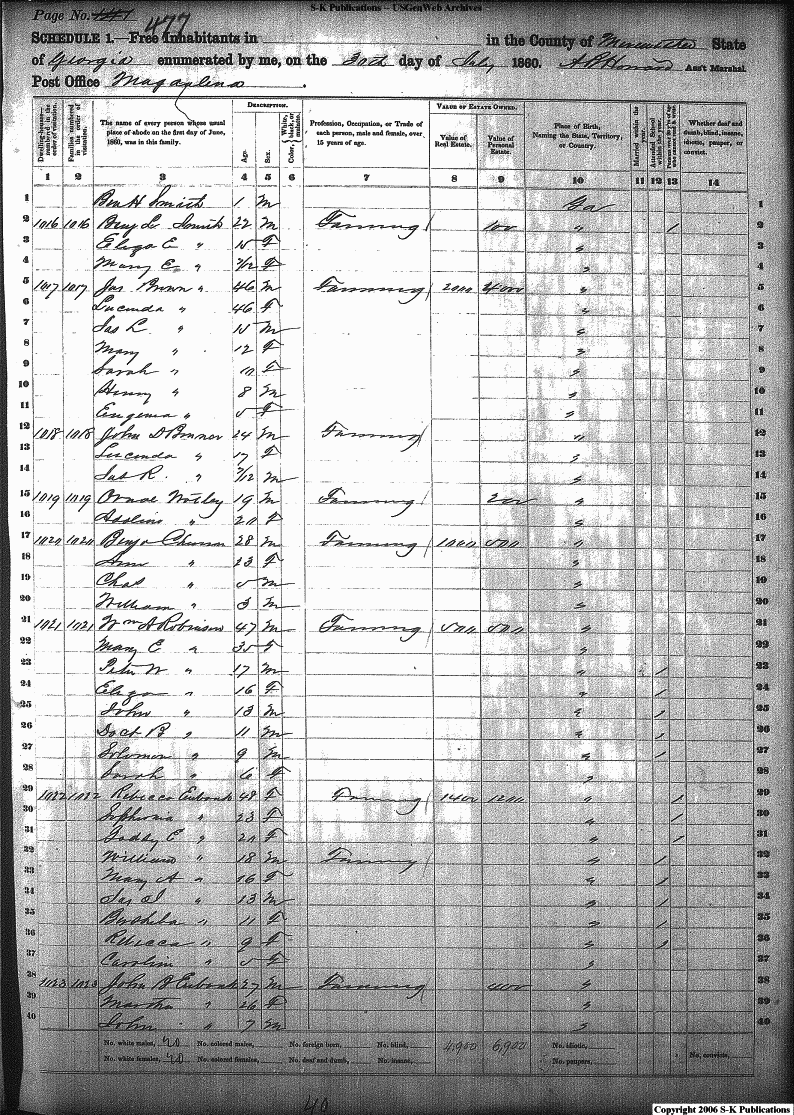 S-K Publications – USGenWeb Archives
Page No. 477
SCHEDULE 1.—Free Inhabitants in in the County of State
of Georgia enumerated by me, on the 30th day of July 1860. Ass't Marshal.
Post Office
Dwelling-houses numbered in the order of visitation.
Families numbered in the order of visitation.
The name of every person whose usual place of abode on the first day of June, 1860, was in this family.
DESCRIPTION.
Age.
Sex.
Color, White, black, or mulatto.
Profession, Occupation, or Trade of each person, male and female, over 15 years of age.
VALUE OF ESTATE OWNED.
Value of Real Estate.
Value of Personal Estate.
Place of Birth, Naming the State, Territory, or Country.
Married within the year.
Attended School within the year.
Persons over 20 y'rs of age who cannot read & write.
Whether deaf and dumb, blind, insane, idiotic, pauper, or convict.
1 2 3 4 5 6 7 8 9 10 11 12 13 14
1 Ben H Smith 1 m Ga 1
2 1016 1016 Benj L Smith 22 m Farming 100 " / 2
3 Eliza E " 15 F " 3
4 Mary E " 7/12 F " 4
5 1017 1017 Jas Brown " 46 m Farming 2000 2400 " 5
6 Lucinda " 46 F " 6
7 Jas L " 15 m " 7
8 Mary " 12 F " 8
9 Sarah " 10 F " 9
10 Henry " 8 m " 10
11 Eugenia " 5 F " 11
12 1018 1018 John D 24 m Farming " 12
13 Lucinda " 17 F " 13
14 Jas R. " 7/12 m " 14
15 1019 1019 19 m Farming 200 " 15
16 " 20 F " 16
17 1020 1020 Benj 28 m Farming 1000 500 " 17
18 Ann " 23 F " 18
19 Chas " 5 m " 19
20 William " 3 m " 20
21 1021 1021 Wm A Robinson 47 m Farming 500 500 " 21
22 Mary E " 35 F " 22
23 Peter W " 17 m " / 23
24 Eliza " 16 F " / 24
25 John " 13 m " / 25
26 Doct B " 11 m " / 26
27 Solomon " 9 m " / 27
28 Sarah " 6 F " 28
29 1022 1022 Rebecca Eubank 48 F Farming 1400 1200 " / 29
30 Sophronia " 23 F " / 30
31 E " 20 F " / 31
32 William " 18 m Farming " / 32
33 Mary A " 16 F " / 33
34 Jas " 13 m " / 34
35 " 11 F " / 35
36 Rebecca " 9 F " / 36
37 Caroline " 5 F " 37
38 1023 1023 John B Eubank 27 m Farming 400 " 38
39 Martha " 26 F " 39
40 John " 7 m " 40
No. white males, 20 No. colored males, No. foreign born, No. blind, 4,900 6,900 No. idiotic,
No. white females, 20 No. colored females, No. deaf and dumb, No. insane, No. paupers, No. convicts,
40
Copyright 2006 S-K Publications